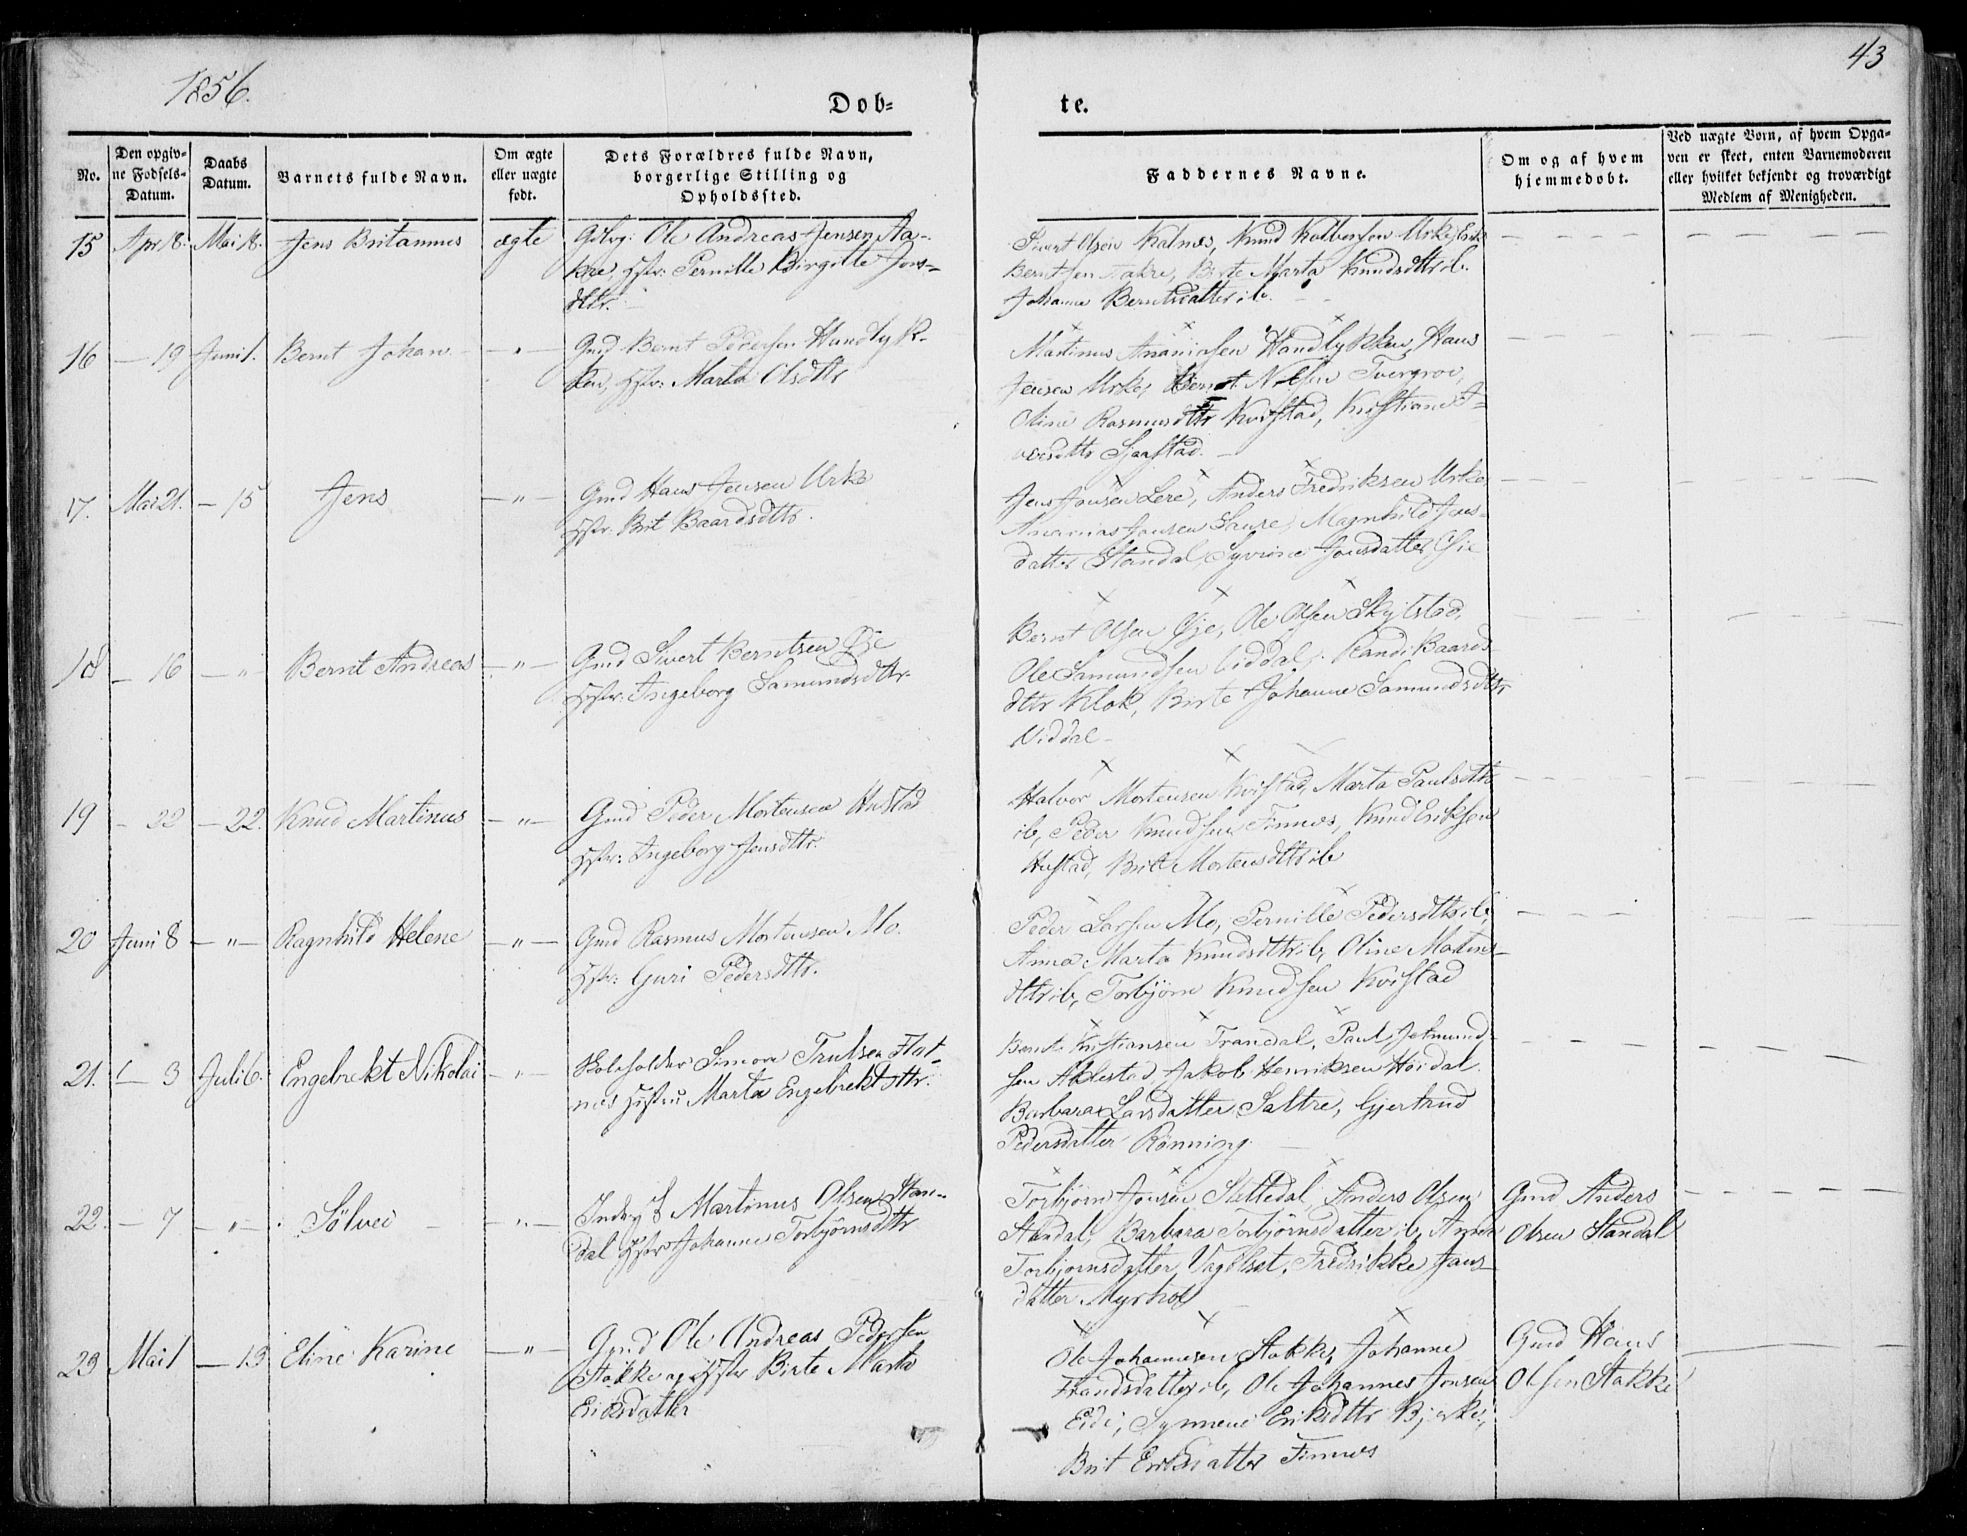 1856.
43
Dob-
te.
No.
Den opgiv-
ne Fødsels-
Datum.
Daabs
Datum.
Barnets fulde Navn.
Om ægte
eller uægte
født.
Dets Forældres fulde Navn,
borgerlige Stilling og
Opholdssted.
Faddernes Navne.
Om og af hvem
hjemmedøbt.
Ved uægte Born, af hvem Opga-
ven er skeet, enten Barnemoderen
eller hvilket bekjendt og troværdigt
Medlem af Menigheden.
15 Apr 18. Mai 18. Jens Britannus ægte
Ole Andreas Jensen Aa-
kre, Hstr: Pernille Birgitte Jens-
dttr.
Sivert Olsen Kalnæs, Knud
Berntsen Aakre, Birte Marta Knudsdttr ib.
Johanne Berntsdatter ib.
16 — 19 Juni 1. Bernt Johan — " —
Gmd Bernt Pedersen Handlyk-
ken, Hstr: Marta Olsdttr
Martinus Ananiasen Handlykken, Hans
Jensen Urke, Bernt Nilsen Tvergrov,
Oline Rasmusdttr Kvistad, Kristiane I-
versdttr Sjaastad.
17. Mai 21. — 15 Jens — " —
Gmd Hans Jensen Urke
Hstr. Brit Baardsdttr.
Jens Jonsen Lere, Anders Fredriksen Urke,
Ananias Jonsen, Magnhild Jens-
datter Standal, Syvrine Jonsdatter Øie
18 — 16 — " — Bernt Andreas — " —
Gmd Sivert Berntsen Øje
Hstr: Ingeborg Samundsdttr.
Bernt Olsen Øje, Ole Olsen Skylstad,
Ole Samundsen Viddal, Randi Baards-
dttr Klok, Birte Johanne Samundsdttr
Viddal
19 — 22 — 22. Knud Martinus — " —
Gmd Peder Mortensen Hustad
Hstr: Ingeborg Jensdttr.
Halvor Mortensen Kvistad, Marta Paulsdttr
ib, Peder Knudsen Finnes, Knud Eriksen
Hustad, Brit Mortensdttr ib
20 Juni 8 — " — Ragnhild Helene — " —
Gmd Rasmus Mortensen Mo.
Hstr: Guri Pedersdttr.
Peder Larsen Mo, Pernille Pedersdttr ib,
Anna Marta Knudsdttr ib, Oline Mortens-
dttr ib, Torbjörn Knudsen Kvistad
21. — 3 Juli 6. Engebrekt Nikolai — " —
Skoleholder Simon Trulsen Flot-
næs Hustru Marta Engebrektsdttr.
Bernt Kristiansen Trandal, Paul Jetmund-
sen Aklestad Jakob Henriksen Höidal.
Barbara Larsdatter Saltre, Gjertrud
Pedersdatter Rönning
22. — 7 — " — Sölvei — " —
Martinus Olsen Stan-
dal Hstr Johanne Torbjörnsdttr
Torbjörn Jonsen Slettedal, Anders Olsen
Standal, Barbara Torbjörnsdatter ib, Anne
Torbjornsdatter, Fredrikke Jans-
datter Myrhol
Gmd Anders
Olsen Standal
23 Mai 1 — 13 Eline Karine — " —
Gmd Ole Andreas Pedersen
Stakke og Hstr Birte Marta
Eriksdatter
Ole Johannesen Stakke, Johanne
Frandsdatter ib, Ole Johannes Jensen
Eide, Synneve Eriksdttr Bjerke,
Brit Eriksdatter Finnes
Gmd Hans
Olsen Stakke